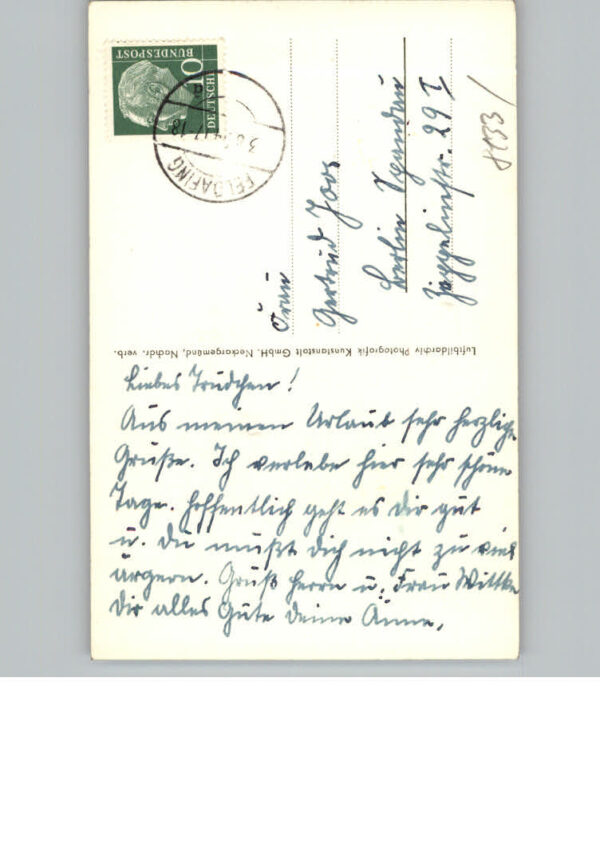 Liebes Trudchen!
Aus meinem Urlaub sehr herzliche
Grüße. Ich verlebe hier sehr schöne
Tage. Hoffentlich geht es Dir gut
u. Du mußt Dich nicht zu viel
ärgern. Gruß Herrn u. Frau Wittke
Dir alles Gute Deine Änne.
Luftbildarchiv Photografik Kunstanstalt GmbH. Neckargemünd, Nachdr. verb.
Frau
Gertrud Joos
Berlin Spandau
Zeppelinstr. 29 I
8133/
10
DEUTSCHE
BUNDESPOST
FELDAFING
17-18